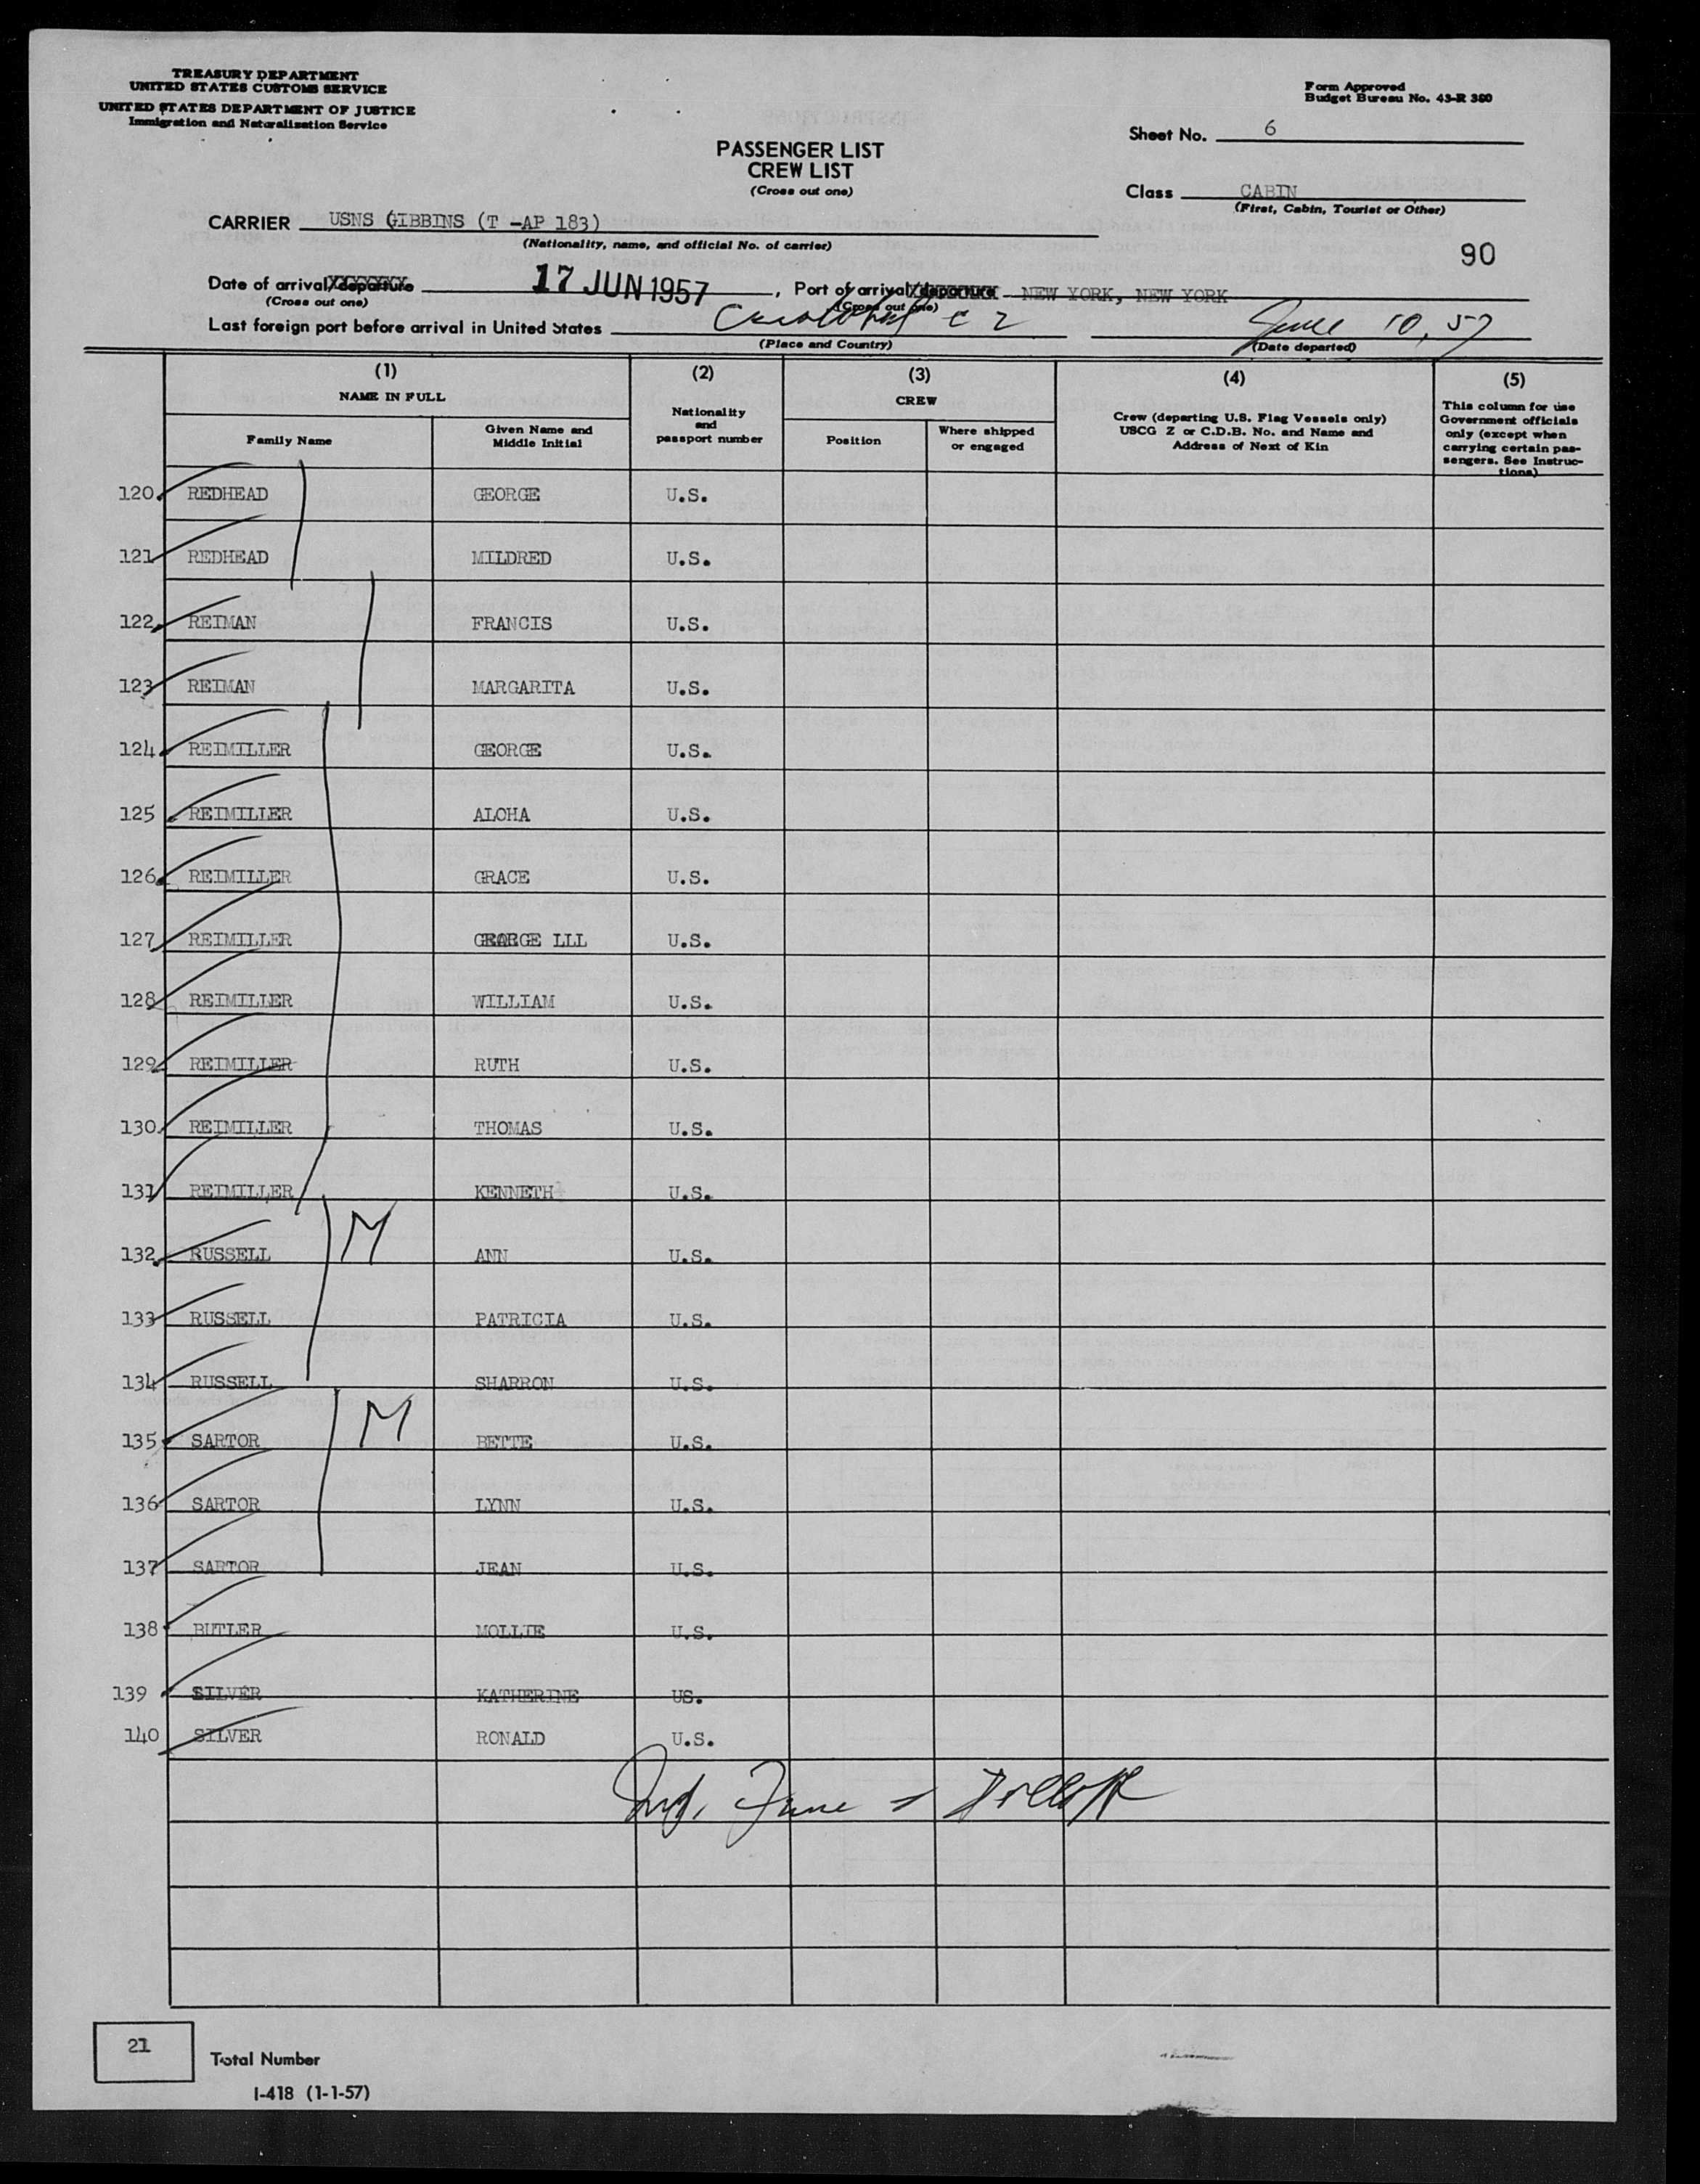 TREASURY DEPARTMENT
UNITED STATES CUSTOMS SERVICE
UNITED STATES DEPARTMENT OF JUSTICE
Immigration and Naturalization Service
Form Approved
Budget Bureau No. 43-R 380
Sheet No. 6
PASSENGER LIST
CREW LIST
(Cross out one)
Class CABIN
(First, Cabin, Tourist or Other)
CARRIER USNS GIBBINS (T -AP 183)
(Nationality, name, and official No. of carrier)
90
Date of arrival/departure 17 JUN 1957, Port of arrival/departure NEW YORK, NEW YORK
(Cross out one) (Cross out one)
Last foreign port before arrival in United States C Z June 10, 57
(Place and Country) (Date departed)
(1) (2) (3) (4) (5)
NAME IN FULL Nationality and passport number CREW Crew (departing U.S. Flag Vessels only) USCG Z or C.D.B. No. and Name and Address of Next of Kin This column for use Government officials only (except when carrying certain passengers. See Instructions)
Family Name Given Name and Middle Initial Position Where shipped or engaged
120 REDHEAD GEORGE U.S.
121 REDHEAD MILDRED U.S.
122 REIMAN FRANCIS U.S.
123 REIMAN MARGARITA U.S.
124 REIMILLER GEORGE U.S.
125 REIMILLER ALOHA U.S.
126 REIMILLER GRACE U.S.
127 REIMILLER GEORGE LLL U.S.
128 REIMILLER WILLIAM U.S.
129 REIMILLER RUTH U.S.
130 REIMILLER THOMAS U.S.
131 REIMILLER KENNETH U.S.
M
132 RUSSELL ANN U.S.
133 RUSSELL PATRICIA U.S.
134 RUSSELL SHARRON U.S.
M
135 SARTOR BETTE U.S.
136 SARTOR LYNN U.S.
137 SARTOR JEAN U.S.
138 BUTLER MOLLIE U.S.
139 SILVER KATHERINE US.
140 SILVER RONALD U.S.
21
Total Number
I-418 (1-1-57)